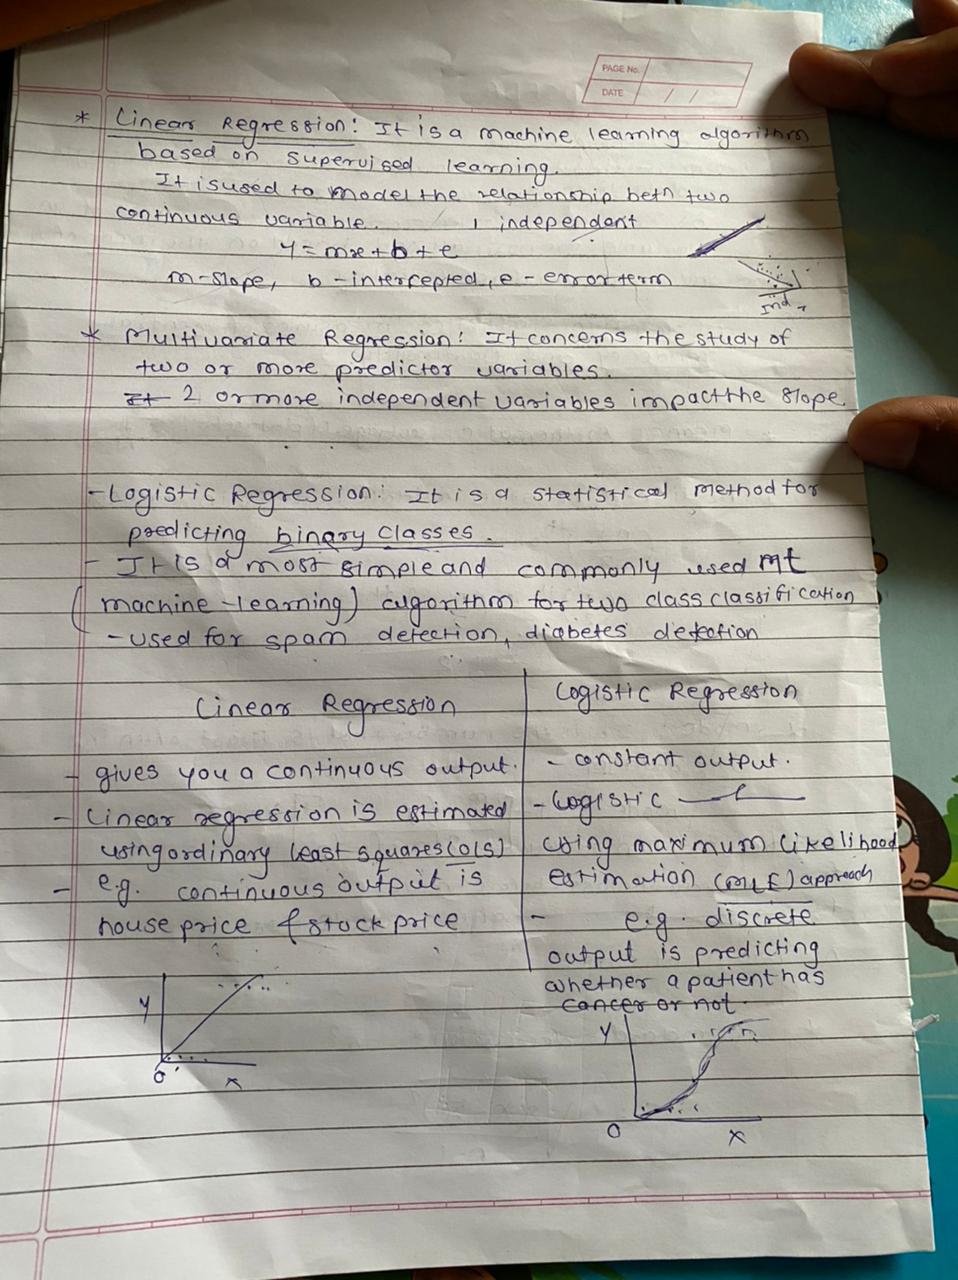 PAGE No.
DATE / /
* Linear Regression: It is a machine learning algorithm
based on supervised learning.
It is used to model the relationship betn two
continuous variable. 1 independent
y = mx + b + e
m-slope, b-intercepted, e-error term
Ind
* Multivariate Regression: It concerns the study of
two or more predictor variables.
It 2 or more independent variables impact the slope
- Logistic Regression: It is a statistical method for
predicting binary classes.
- It is a most simple and commonly used mt
(machine-learning) algorithm for two class classification
- used for spam detection, diabetes detection
Linear Regression
- gives you a continuous output.
- Linear regression is estimated
using ordinary least squares (OLS)
- e.g. continuous output is
house price & stock price
Logistic Regression
- constant output.
- Logistic
using maximum likelihood
estimation (MLE) approach
- e.g. discrete
output is predicting
whether a patient has
cancer or not.
y
0
x
y
0
x